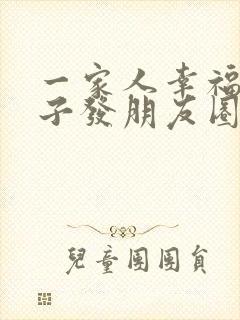 一家人幸福
子發朋友圈
兒童團團員